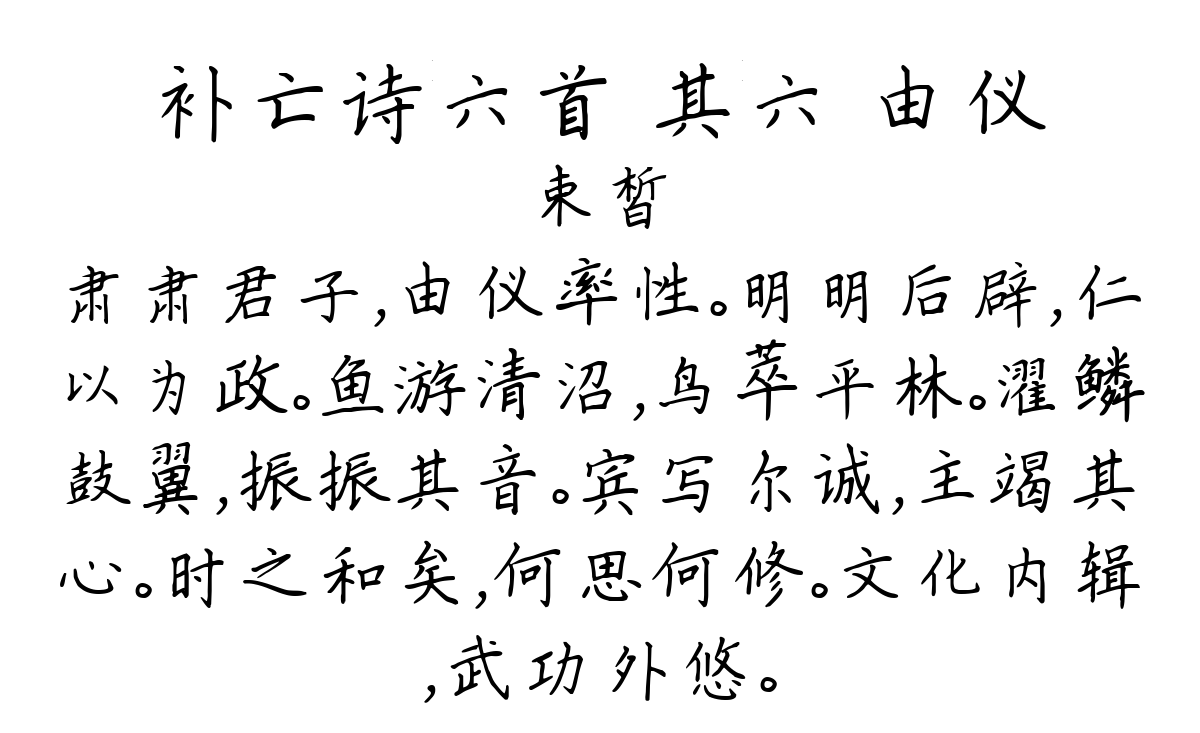 补亡诗六首 其六 由仪
束皙
肃肃君子,由仪率性。明明后辟,仁
以为政。鱼游清沼,鸟萃平林。濯鳞
鼓翼,振振其音。宾写尔诚,主竭其
心。时之和矣,何思何修。文化内辑
,武功外悠。